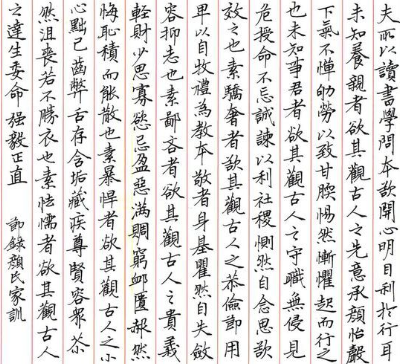 夫所以讀書學問本欲開心明目利於行耳
未知養親者欲其觀古人之先意承顏怡聲
下氣不憚劬勞以致甘腝惕然慚懼起而行之
也未知事君者欲其觀古人之守職無侵見
危授命不忘誠諫以利社稷惻然自念思欲
效之也素驕奢者欲其觀古人之恭儉節用
卑以自牧禮為教本敬者身基瞿然自失斂
容抑志也素鄙吝者欲其觀古人之貴義
輕財少思寡慾忌盈惡滿賙窮卹匱赧然
悔恥積而能散也素暴悍者欲其觀古人之小
心黜己齒弊舌存含垢藏疾尊賢容眾苶
然沮喪若不勝衣也素怯懦者欲其觀古人
之達生委命強毅正直 節錄顏氏家訓